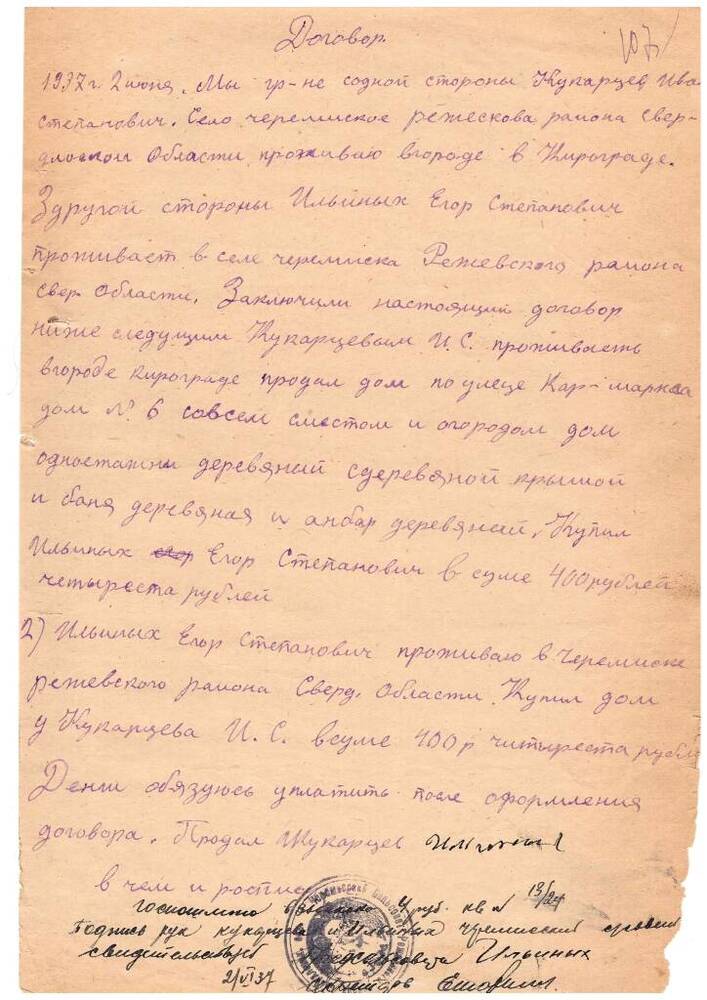 Договор.
107
1937 г. 2 июня. Мы гр-не содной стороны Кукарцев Ива
Степанович. Село черемиское режескова района Свер-
дловской Области проживаю вгороде в Кирограде.
Здругой стороны Ильиных Егор Степанович
проживает в селе черемиска Режевского района
свер. Области. Заключили настоящий договор
ниже следущим Кукарцевым И.С. проживасть
вгороде кирограде продал дом по улеце Кар-маркса
дом №6 совсем сместом и огородом дом
одноетажни деревяний сдеревяной крышой
и баня деревяная и анбар деревяний. Купил
Ильиных Егор Степанович в суме 400 рублей
четыреста рублей
2) Ильиных Егор Степанович проживаю в Черемиске
режевского района Сверд. Области. Купил дом
у Кукарцева И. С. всуме 400 р читыреста рубле
Денги обязуюсь уплатить после оформления
договора. Продал Шукарцев
в чем и роспис
госпошлино взыскано 4 руб. кв N 13/24
Подпись рук кукарцева и Ильиных черемиский
свидительствует Ильиных
2/VI 37